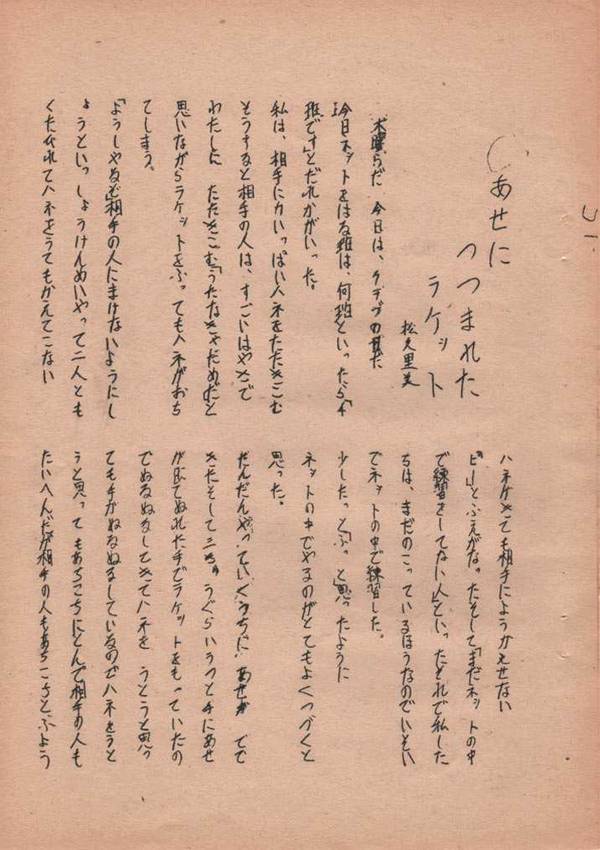 あせに
つつまれた
ラケット
松久里美
木曜らだ 今日は、クラブの日だ
「今日ネットをはる班は、何班」といったら「4
班です」とだれかがいった。
私は、相手に力いっぱいハネをたたきこむ
そうすると相手の人は、すごいはやさで
わたしに たたきこむ「うたなきゃだめだ」と
思いながらラケットをふってもハネがおち
てしまう。
「ようしやるぞ」相手の人にまけないようにし
ょうといっしょうけんめいやって二人とも
くたびれてハネをうてもかえてこない
ハネがきても相手にようかえせない
「ピー」とふえがなったそして「まだネットの中
で練習をしてない人」といったそれで私した
ちは、まだのこっているほうなのでいそい
でネットの中で練習した。
少したったとふっと思ったように
ネットの中でやるのがとてもよくつづくと
思った。
だんだんやっていくうちに あせが でて
きたそして三きうぐらいうつと手にあせ
がでてぬれた手でラケットをもっていたの
でぬるぬるしてきてハネを うとうと思っ
ても手がぬるぬるしているのでハネをうと
うと思ってもあちこちにとんで相手の人も
たいへんだが相手の人もあちこちとぶよう